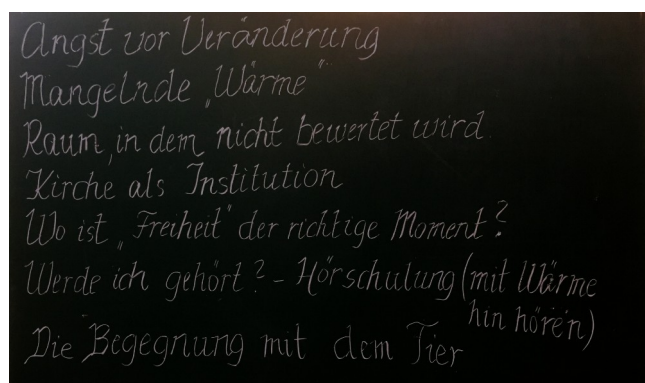 Angst vor Veränderung
Mangelnde „Wärme“
Raum, in dem nicht bewertet wird
Kirche als Institution
Wo ist „Freiheit“ der richtige Moment?
Werde ich gehört? – Hörschulung (mit Wärme
hin hören)
Die Begegnung mit dem Tier